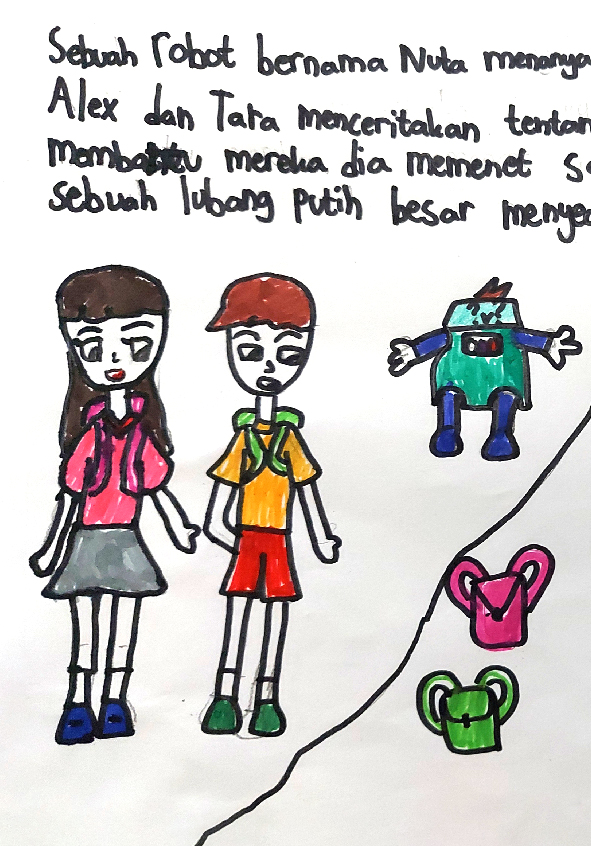 Sebuah robot bernama Nuta menanya
Alex dan Tara menceritakan tentan
mereka dia memenet
sebuah lubang putih besar menyed